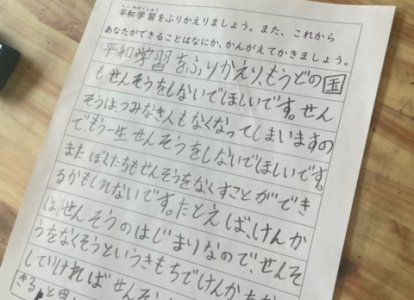 へいわがくしゅう
平和学習をふりかえりましょう。また、これから
あなたができることはなにか、かんがえてかきましょう。
平和学習をふりかえり、もうどの国
もせんそうをしないでほしいです。せん
そうはつみなき人もなくなってしまいますの
で、もう一生せんそうをしないでほしいです。
またぼくたちもせんそうをなくすことができ
るかもしれないです。たとえば、けんか
は、せんそうのはじまりなので、せんそ
うをなくそうというきもちでけんかを
していければせんそう
きると思